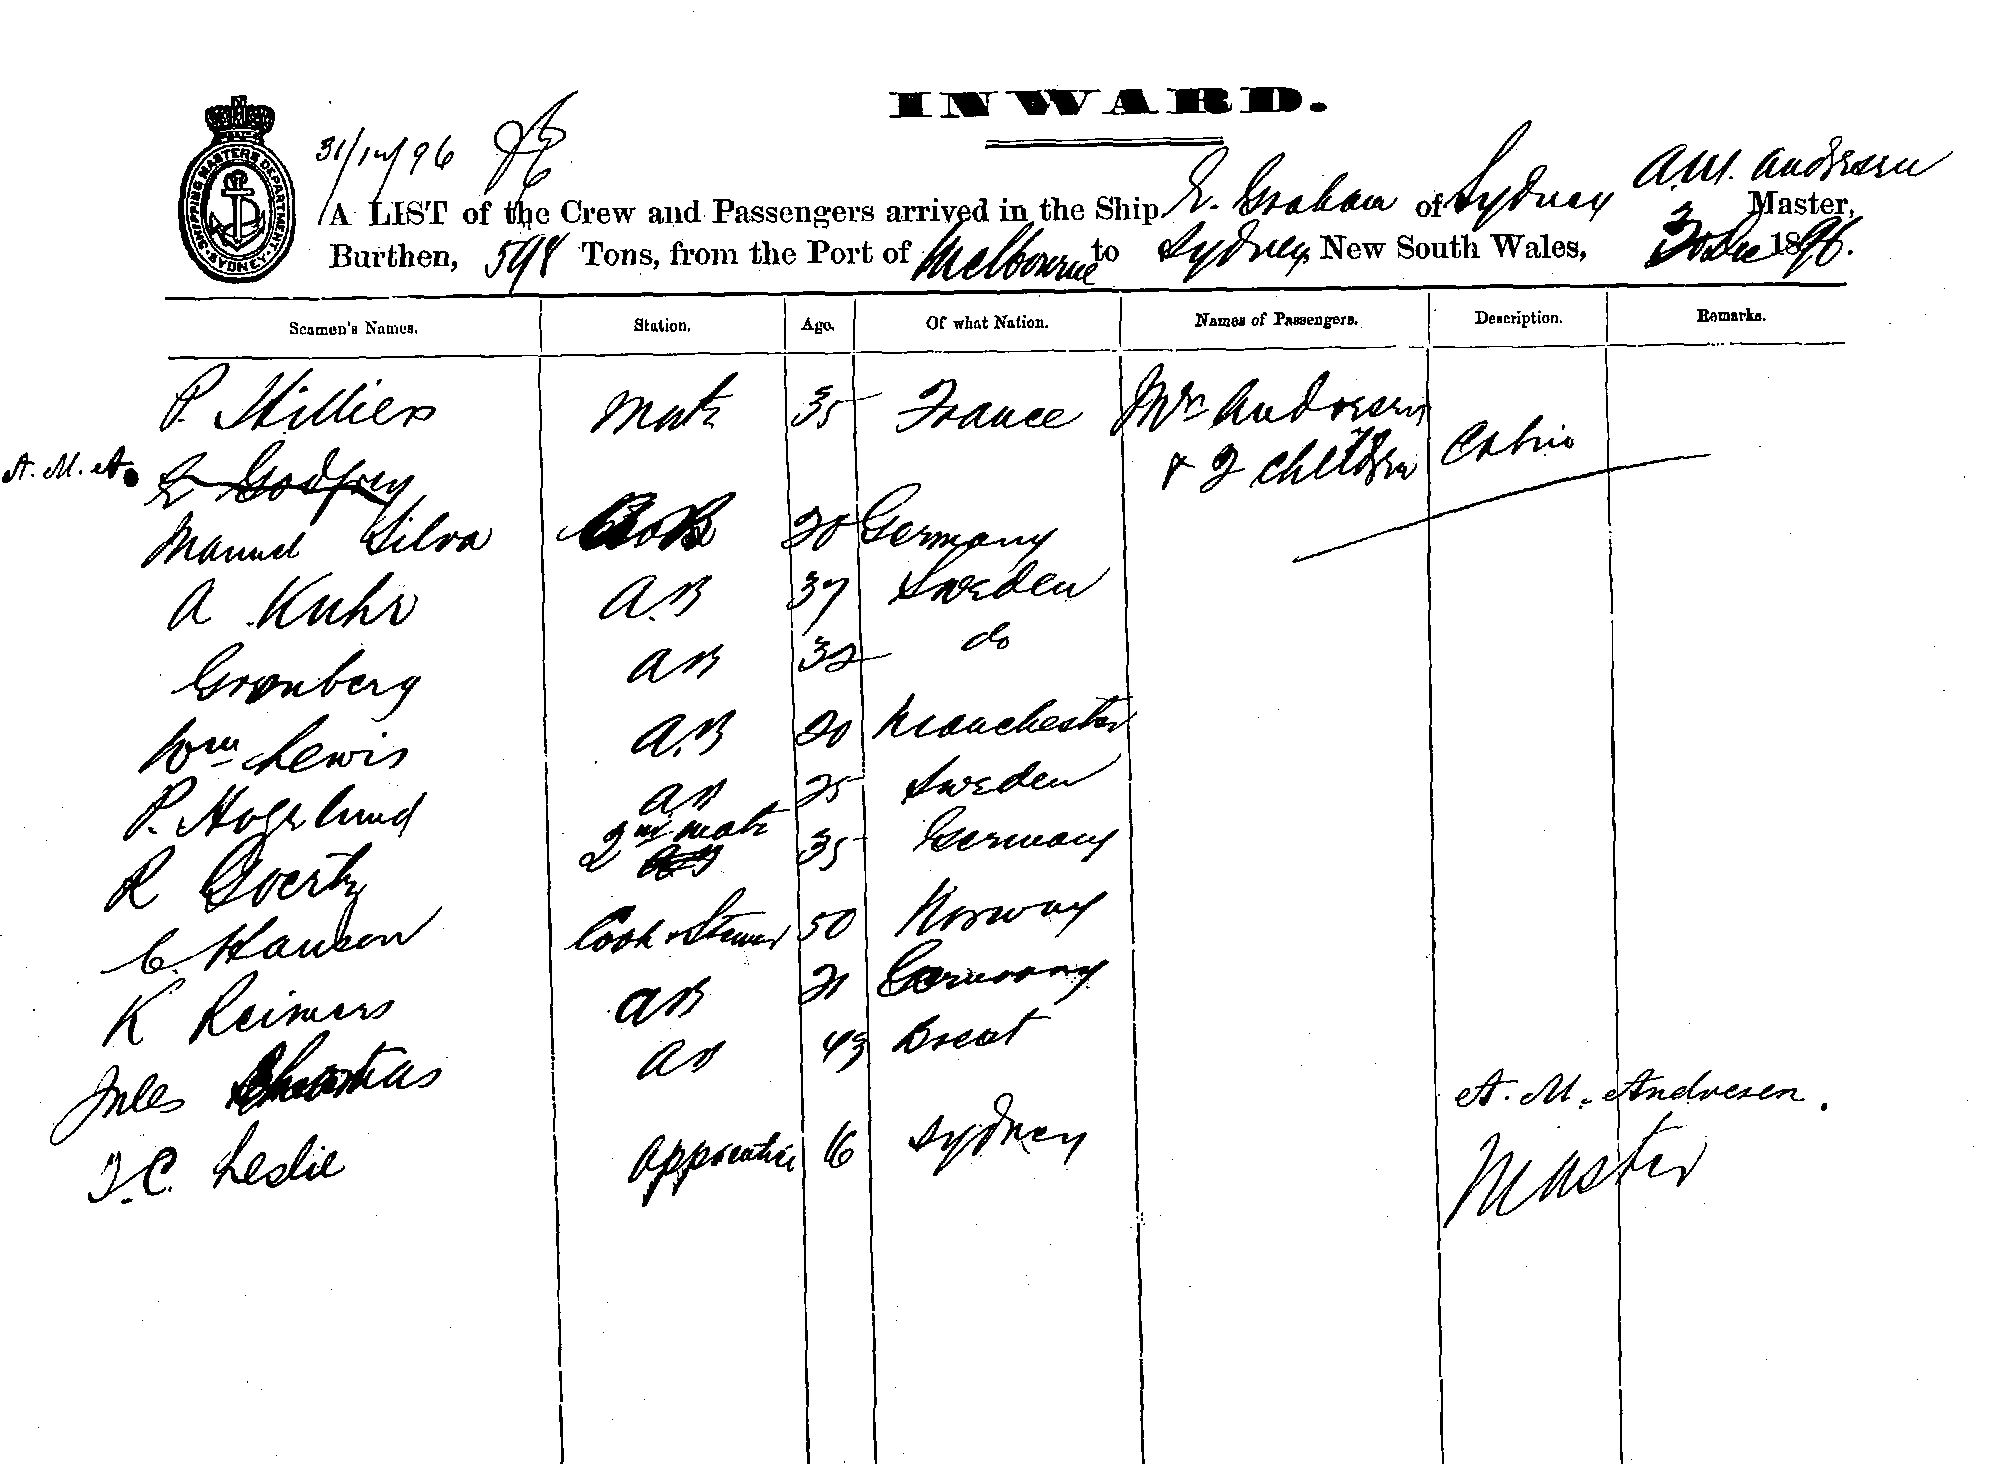 INWARD.
SHIPPING MASTERS DEPARTMENT SYDNEY
31/12/96
A LIST of the Crew and Passengers arrived in the Ship E. Graham of Sydney A.M. Andresen Master,
Burthen, 598 Tons, from the Port of Melbourne to Sydney New South Wales, 30 Dec 1896.
Seamen's Names. Station. Age. Of what Nation. Names of Passengers. Description. Remarks.
P. Hilliers Mate 35 France Mrs Andresen
& 2 Children Cabin
A. M. A. E Godfrey
Manuel Silva 20 Germany
A Kuhr A.B 37 Sweden
Gronberg AB 32 do
Wm Lewis A.B 20 Manchester
P. Hogelund AB 25 Sweden
R Goertz 2nd Mate 35 Germany
C. Hanson Cook & Steward 50 Norway
K Reimers AB 21 Germany
Jules AB 43 Brest
A. M. Andresen.
T.C. Leslie Apprentice 16 Sydney
Master